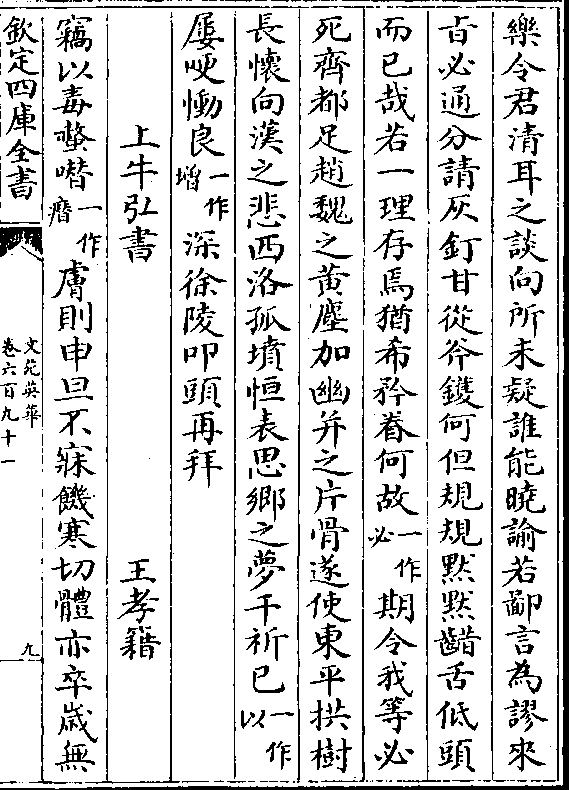 樂令君清耳之談向所未疑誰能曉諭若鄙言為謬來
㫖必通分請灰釘甘從斧鑊何但規規黙黙齰舌低頭
而已哉若一理存焉猶希矜眷何故一作必期令我等必
死齊都足趙魏之黄塵加幽并之片骨遂使東平拱樹
長懷向漢之悲西洛孤墳恒表思鄉之夢干祈已一作以
屢哽慟良一作增深徐陵叩頭再拜
上牛弘書 王孝籍
竊以毒螫㗩一作㿑膚則申旦不寐饑寒切體亦卒嵗無
欽定四庫全書
文苑英華
卷六百九十一
九